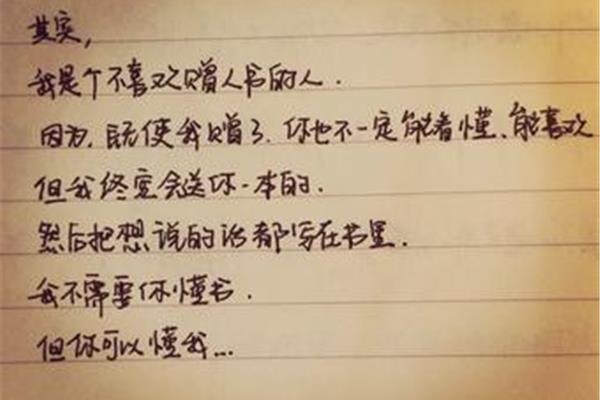 其实,
我是个不喜欢赠人书的人.
因为,既使我赠了.你也不一定能看懂、能喜欢
但我终究会送你一本的.
然后把想说的话都写在书里.
我不需要你懂书.
但你可以懂我...